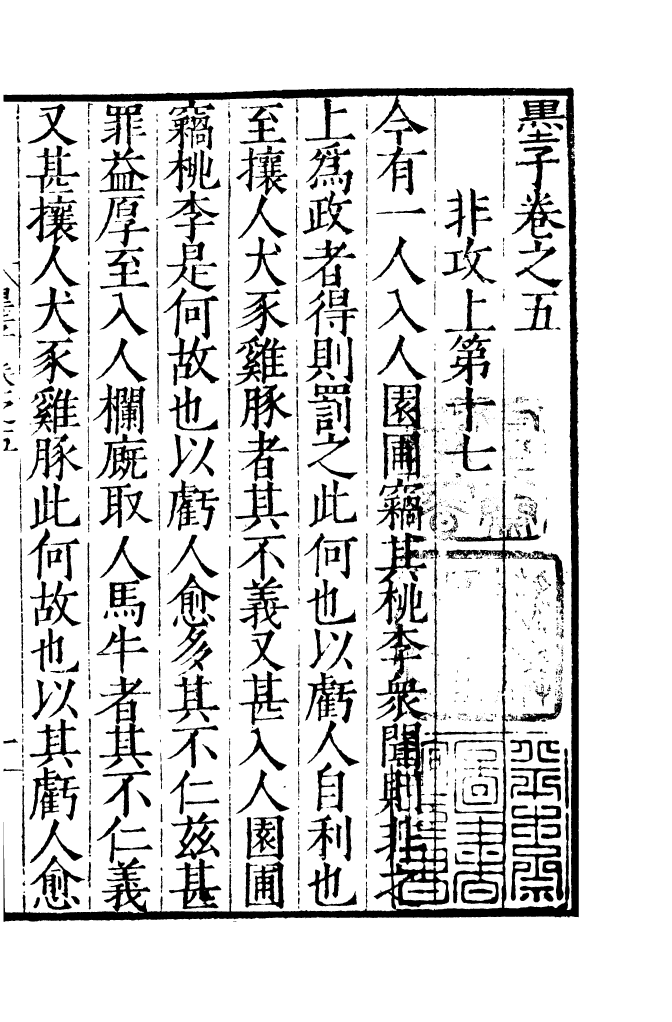 墨子卷之五
非攻上第十七
今有一人入人園圃竊其桃李衆聞則非之
上爲政者得則罰之此何也以虧人自利也
至攘人犬豕雞豚者其不義又甚入人園圃
竊桃李是何故也以虧人愈多其不仁兹甚
罪益厚至入人欄廐取人馬牛者其不仁義
又甚攘人犬豕雞豚此何故也以其虧人愈